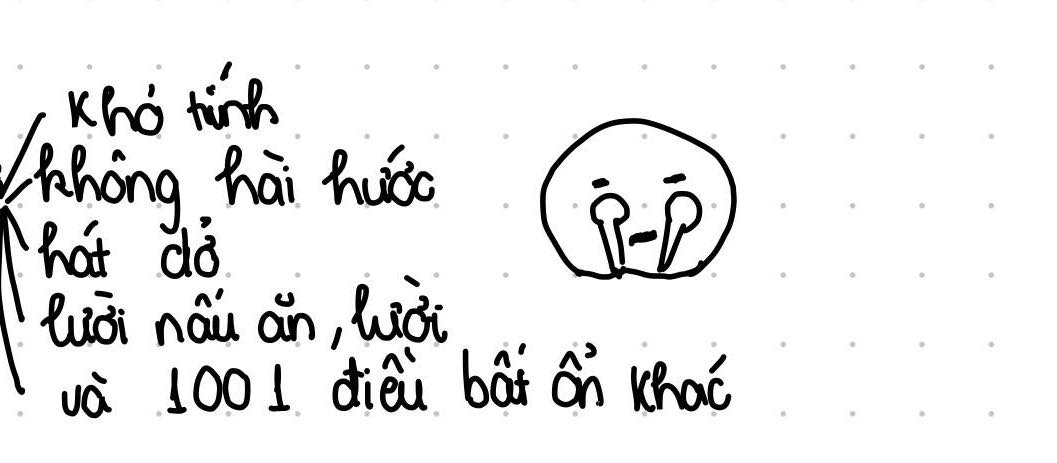 Khó tính
không hài hước
hát dở
lười nấu ăn, lười
và 1001 điều bất ổn khác